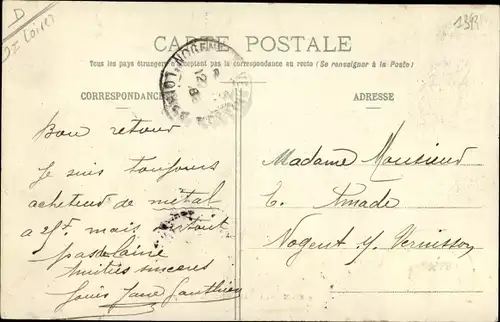 D
Loiret
CARTE POSTALE
Tous les pays étrangers n'acceptent pas la correspondance au recto (Se renseigner à la Poste)
CORRESPONDANCE
Bon retour
Je suis toujours
acheteur de métal
a 25f. mais surtout
pas de laine
Amitiés sincères
Louis Jane Gauthier
ADRESSE
Madame Monsieur
C. Amade
Nogent s/ Vernisson